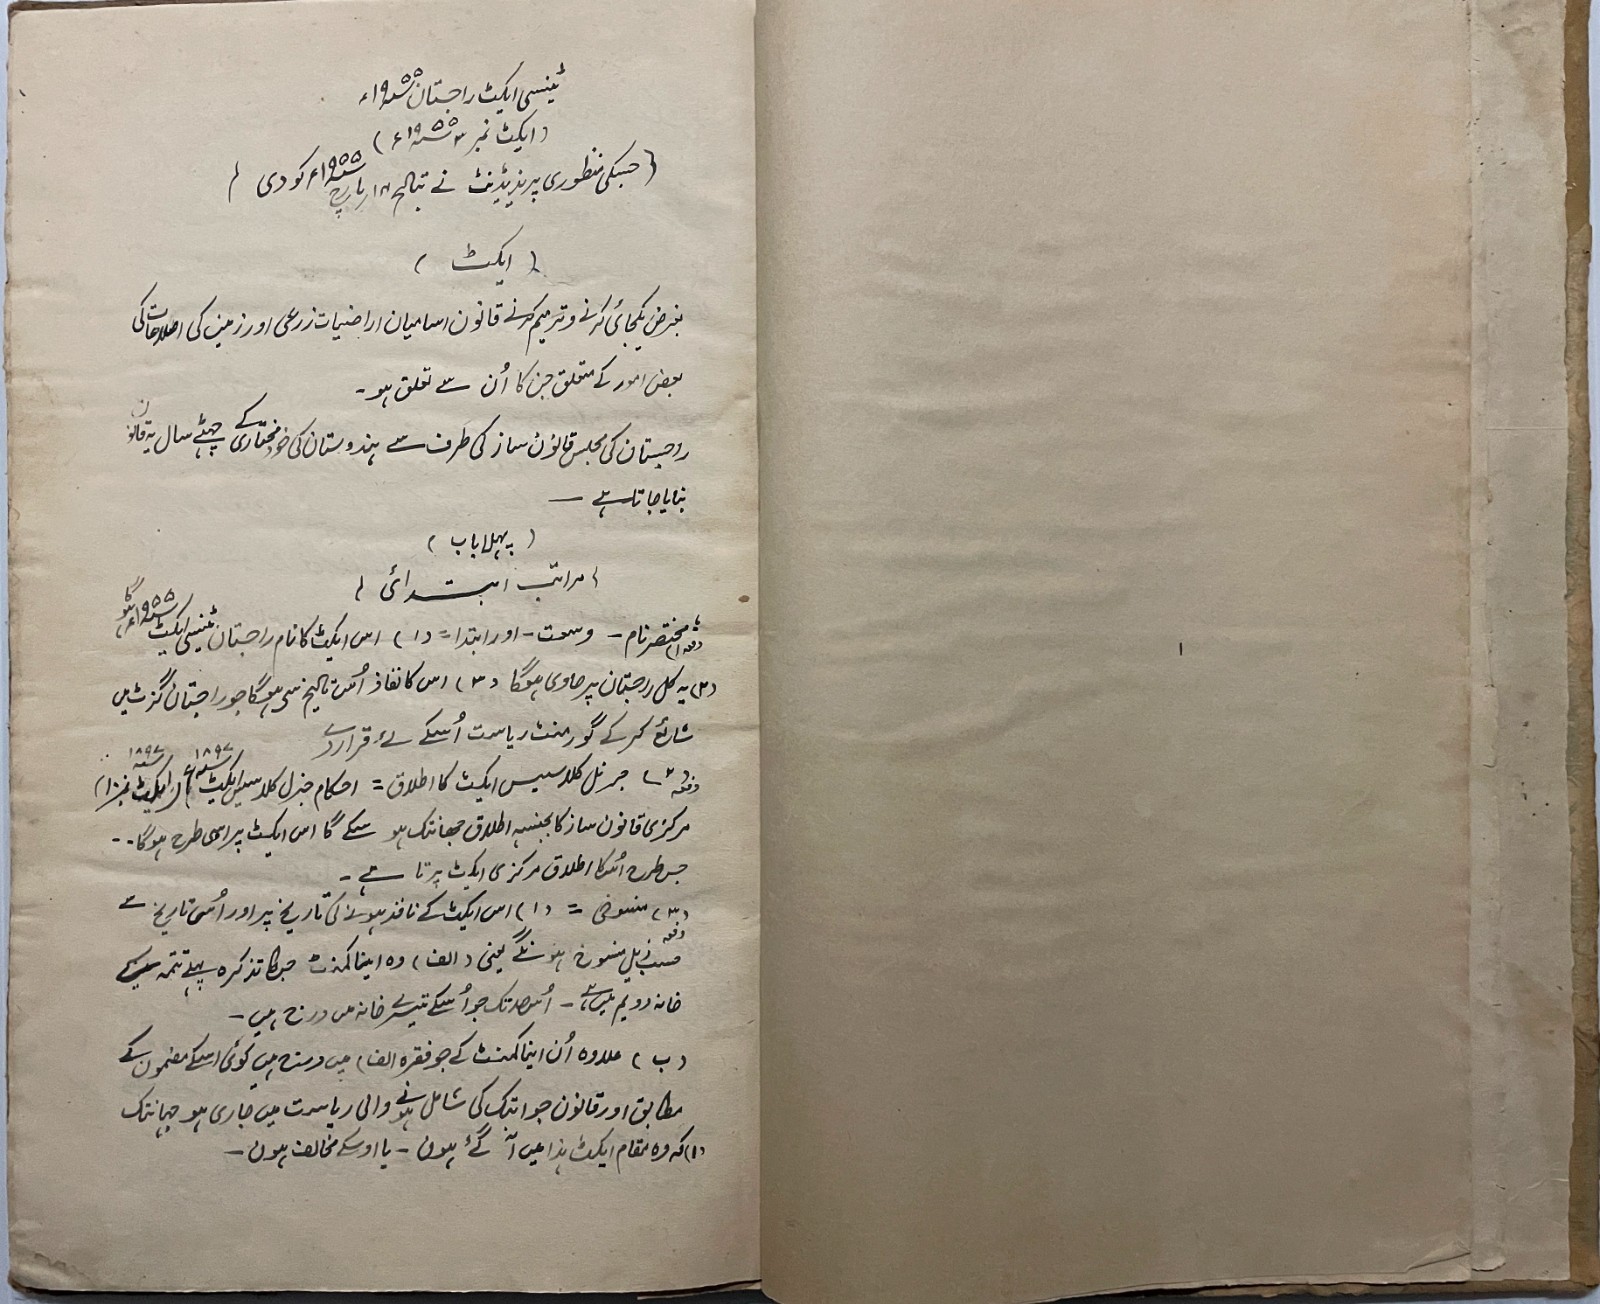 ٹینسی ایکٹ راجستان ۱۹۵۵ء
(ایکٹ نمبر ۳ ۱۹۵۵ء)
(جسکی منظوری پریذیڈنٹ نے بتاریخ ۱۴ مارچ ۱۹۵۵ء کو دی)
(ایکٹ)
بغرض یکجائی کرنے و ترمیم کرنے قانون اسامیان اراضیات زرعی اور زمین کی اصلاحات کی
بعض امور کے متعلق جن کا اُن سے تعلق ہو۔
راجستان کی مجلس قانون ساز کی طرف سے ہندوستان کی خود مختاری کے چھٹے سال یہ قانون
بنایا جاتا ہے —
(پہلا باب)
(مراتب ابتدائی)
دفعہ (۱) مختصر نام - وسعت - اور ابتدا = (۱) اس ایکٹ کا نام راجستان ٹینسی ایکٹ ۱۹۵۵ء ہوگا
(۲) یہ کل راجستان پر حاوی ہوگا (۳) اس کا نفاذ اُس تاریخ سی ہوگا جو راجستان گزٹ میں
شائع کر کے گورمنٹ ریاست اُسکے لۓ قرار دے
دفعہ (۲) جرنل کلاسیس ایکٹ کا اطلاق = احکام جنرل کلاسیس ایکٹ ۱۸۹۷ء (ایکٹ نمبر ۱۰ ۱۸۹۷)
مرکزی قانون ساز کا بجنسہ اطلاق جہانتک ہو سکے گا اس ایکٹ پر اسی طرح ہوگا۔۔
جس طرح اُسکا اطلاق مرکزی ایکٹ پر تا ہے۔
دفعہ (۳) منسوخی = (۱) اس ایکٹ کے نافذ ہونے کی تاریخ پر اور اُسی تاریخ سے
حسب ذیل منسوخ ہونگے یعنی (الف) وہ اینا کمنٹ جنکا تذکرہ پہلے تتمہ کے
خانہ دویم میں ہے - اُس حد تک جو اُسکے تیسرے خانہ میں درج ہیں۔
(ب) علاوہ اُن اینا کمنٹ کے جو فقرہ الف) میں درج ہیں کوئی اسکے مضمون کے
مطابق اور قانون جو ابتک کی شامل ہونے والی ریاست میں جاری ہو جہانتک
(۱) کہ وہ مقام ایکٹ ہذا میں آ گئے ہوں - یا اوسکے مخالف ہوں —